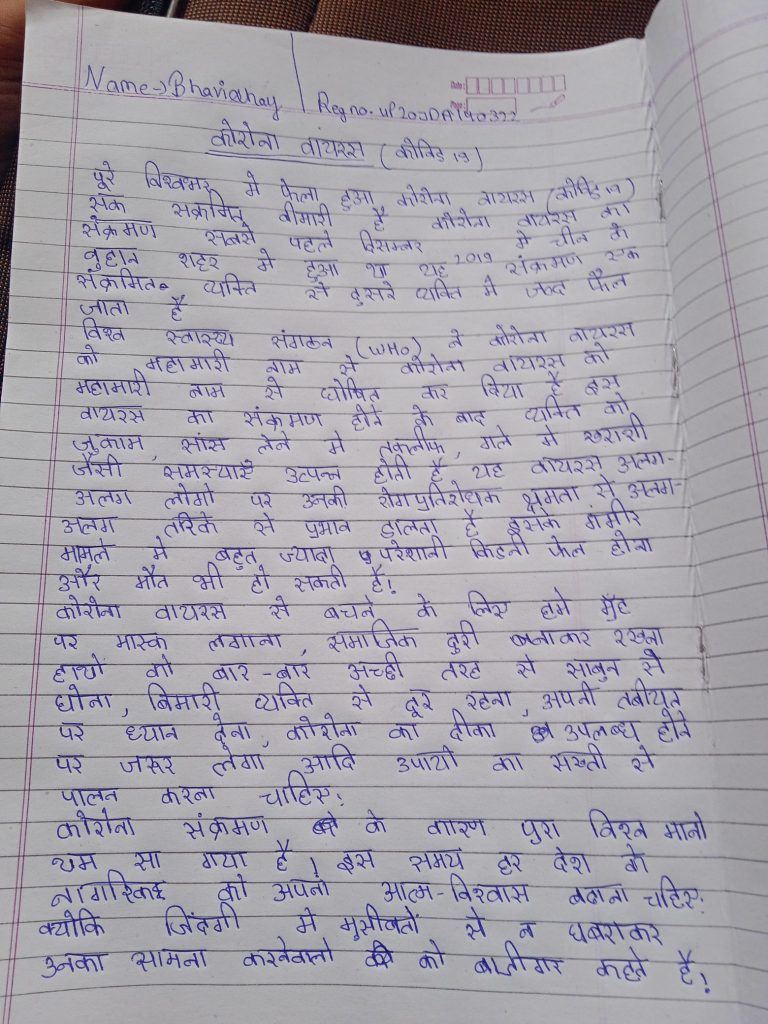 Name→ Bhavianay
Reg no. UP20SDA140322
Date:
Page:
कोरोना वायरस (कोविड 19)
पूरे विश्वभर मे फेला हुआ कोरोना वायरस (कोविड 19)
एक सक्रमित बीमारी है कोरोना वायरस का
संक्रमण सबसे पहले दिसम्बर 2019 मे चीन के
वुहान शहर मे हुआ था यह संक्रमण एक
संक्रमित व्यक्ति से दुसरे व्यक्ति मे जल्द फैल
जाता है
विश्व स्वास्थ्य संगठन (WHO) ने कोरोना वायरस
को महामारी नाम से कोरोना वायरस को
महामारी नाम से घोषित कर दिया है इस
वायरस का संक्रमण होने के बाद व्यक्ति को
जुकाम, सांस लेने मे तकलीफ, गले मे खराशी
जैसी समस्याएँ उत्पन्न होती है यह वायरस अलग-
अलग लोगो पर उनकी रोगप्रतिरोधक क्षमता से अलग-
अलग तरिके से प्रभाव डालता है इसके गंभीर
मामले मे बहुत ज्यादा परेशानी किडनी फेल होना
और मौत भी हो सकती है!
कोरोना वायरस से बचने के लिए हमे मुँह
पर मास्क लगाना, समाजिक दुरी बनाकर रखना
हाथो को बार-बार अच्छी तरह से साबुन से
धोना, बिमारी व्यक्ति से दूर रहना, अपनी तबीयत
पर ध्यान देना, कोरोना का टीका उपलब्ध होने
पर जरुर लेगा आदि उपायो का सख्ती से
पालन करना चाहिए!
कोरोना संक्रमण के कारण पुरा विश्व मानो
थम सा गया है! इस समय हर देश के
नागरिक को अपना आत्म-विश्वास बढाना चहिए!
क्योकि जिंदगी मे मुसीबतों से न घबराकर
उनका सामना करनेवालो को बाजीगर कहते है!